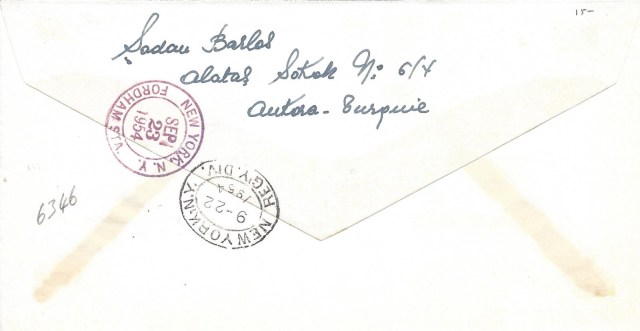 15-
Şadan Barlas
Alataş Sokak No 6/4
Ankara - Turquie
NEW YORK, N.Y.
FORDHAM STA.
SEP
23
1954
NEW YORK, N.Y.
REG'Y. DIV.
9-22
1954
6346